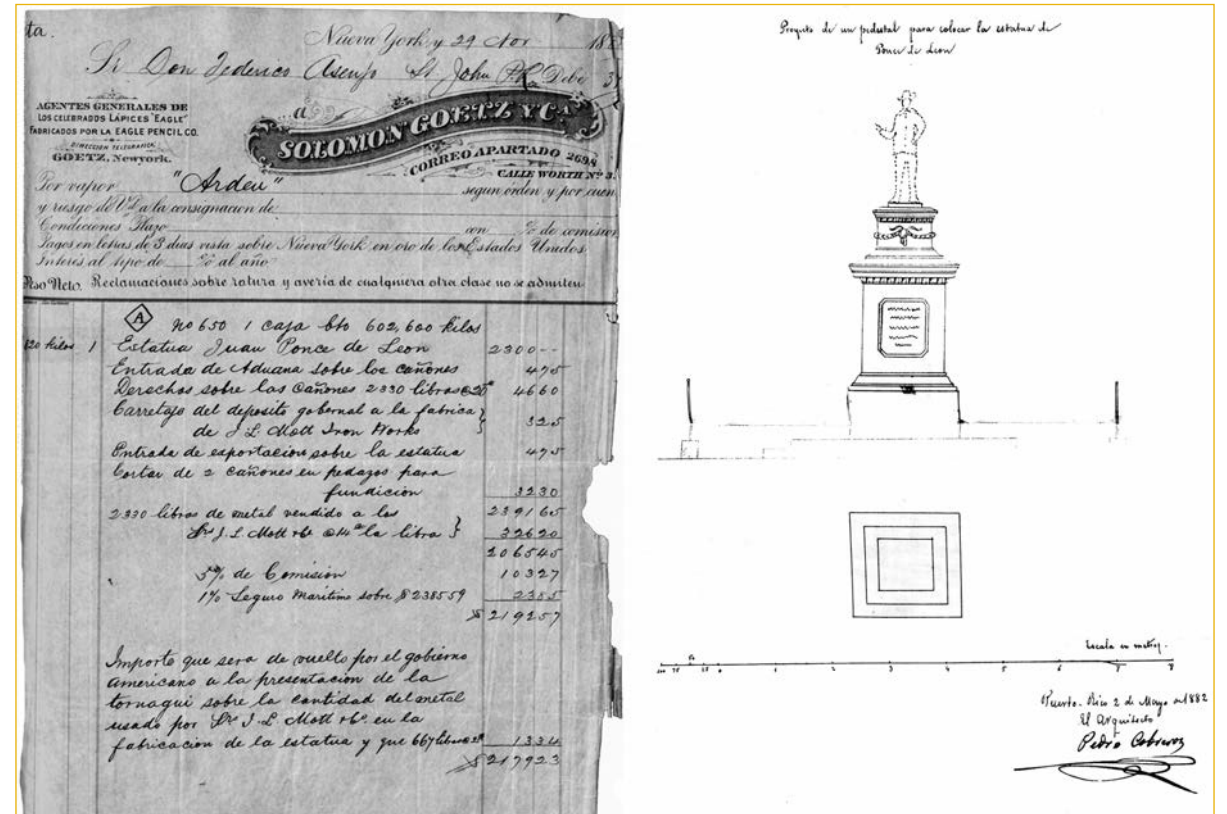 ta.
Nueva York, y 29 Nov 188
Sr Don Federico Asenjo St John P.R. Debe
AGENTES GENERALES DE
LOS CELEBRADOS LÁPICES "EAGLE"
FABRICADOS POR LA EAGLE PENCIL CO.
DIRECCION TELEGRAFICA
GOETZ, Newyork.
a
SOLOMON GOETZ Y CA
CORREO APARTADO 2698
CALLE WORTH Nº 3.
Por vapor "Arden" segun órden y por cuen
y riesgo de Vd a la consignacion de
Condiciones Plazo con % de comision
Pagos en letras de 3 dias vista sobre Nueva York en oro de los Estados Unidos
Interes al tipo de % al año
Peso Neto. Reclamaciones sobre rotura y avería de cualquiera otra clase no se admiten
A no 650 1 caja bto 602,600 kilos
120 kilos 1 Estatua Juan Ponce de Leon 2300--
Entrada de Aduana sobre los cañones 475
Derechos sobre los Cañones 2330 libras @ 2c 4660
Carretaje del deposito gobernal a la fabrica
de J. L. Mott Iron Works 325
Entrada de esportacion sobre la estatua 475
Cortar de 2 cañones en pedazos para
fundicion 3230
2330 libras de metal vendido a los 239165
Srs J. L. Mott & Co @ 14c la libra 32620
206545
5% de Comision 10327
1% Seguro Maritimo sobre $238559 2385
$219257
Importe que sera de vuelto por el gobierno
americano a la presentacion de la
tornagui sobre la cantidad del metal
usado por Srs J. L. Mott & Co. en la
fabricacion de la estatua y que 667 libras @ 2c 1334
$217923
Proyecto de un pedestal para colocar la estatua de
Ponce de Leon
Escala en metros.
0 1 2 3 4 5 6 7 8
Puerto-Rico 2 de Mayo de 1882
El Arquitecto
Pedro Cobreros